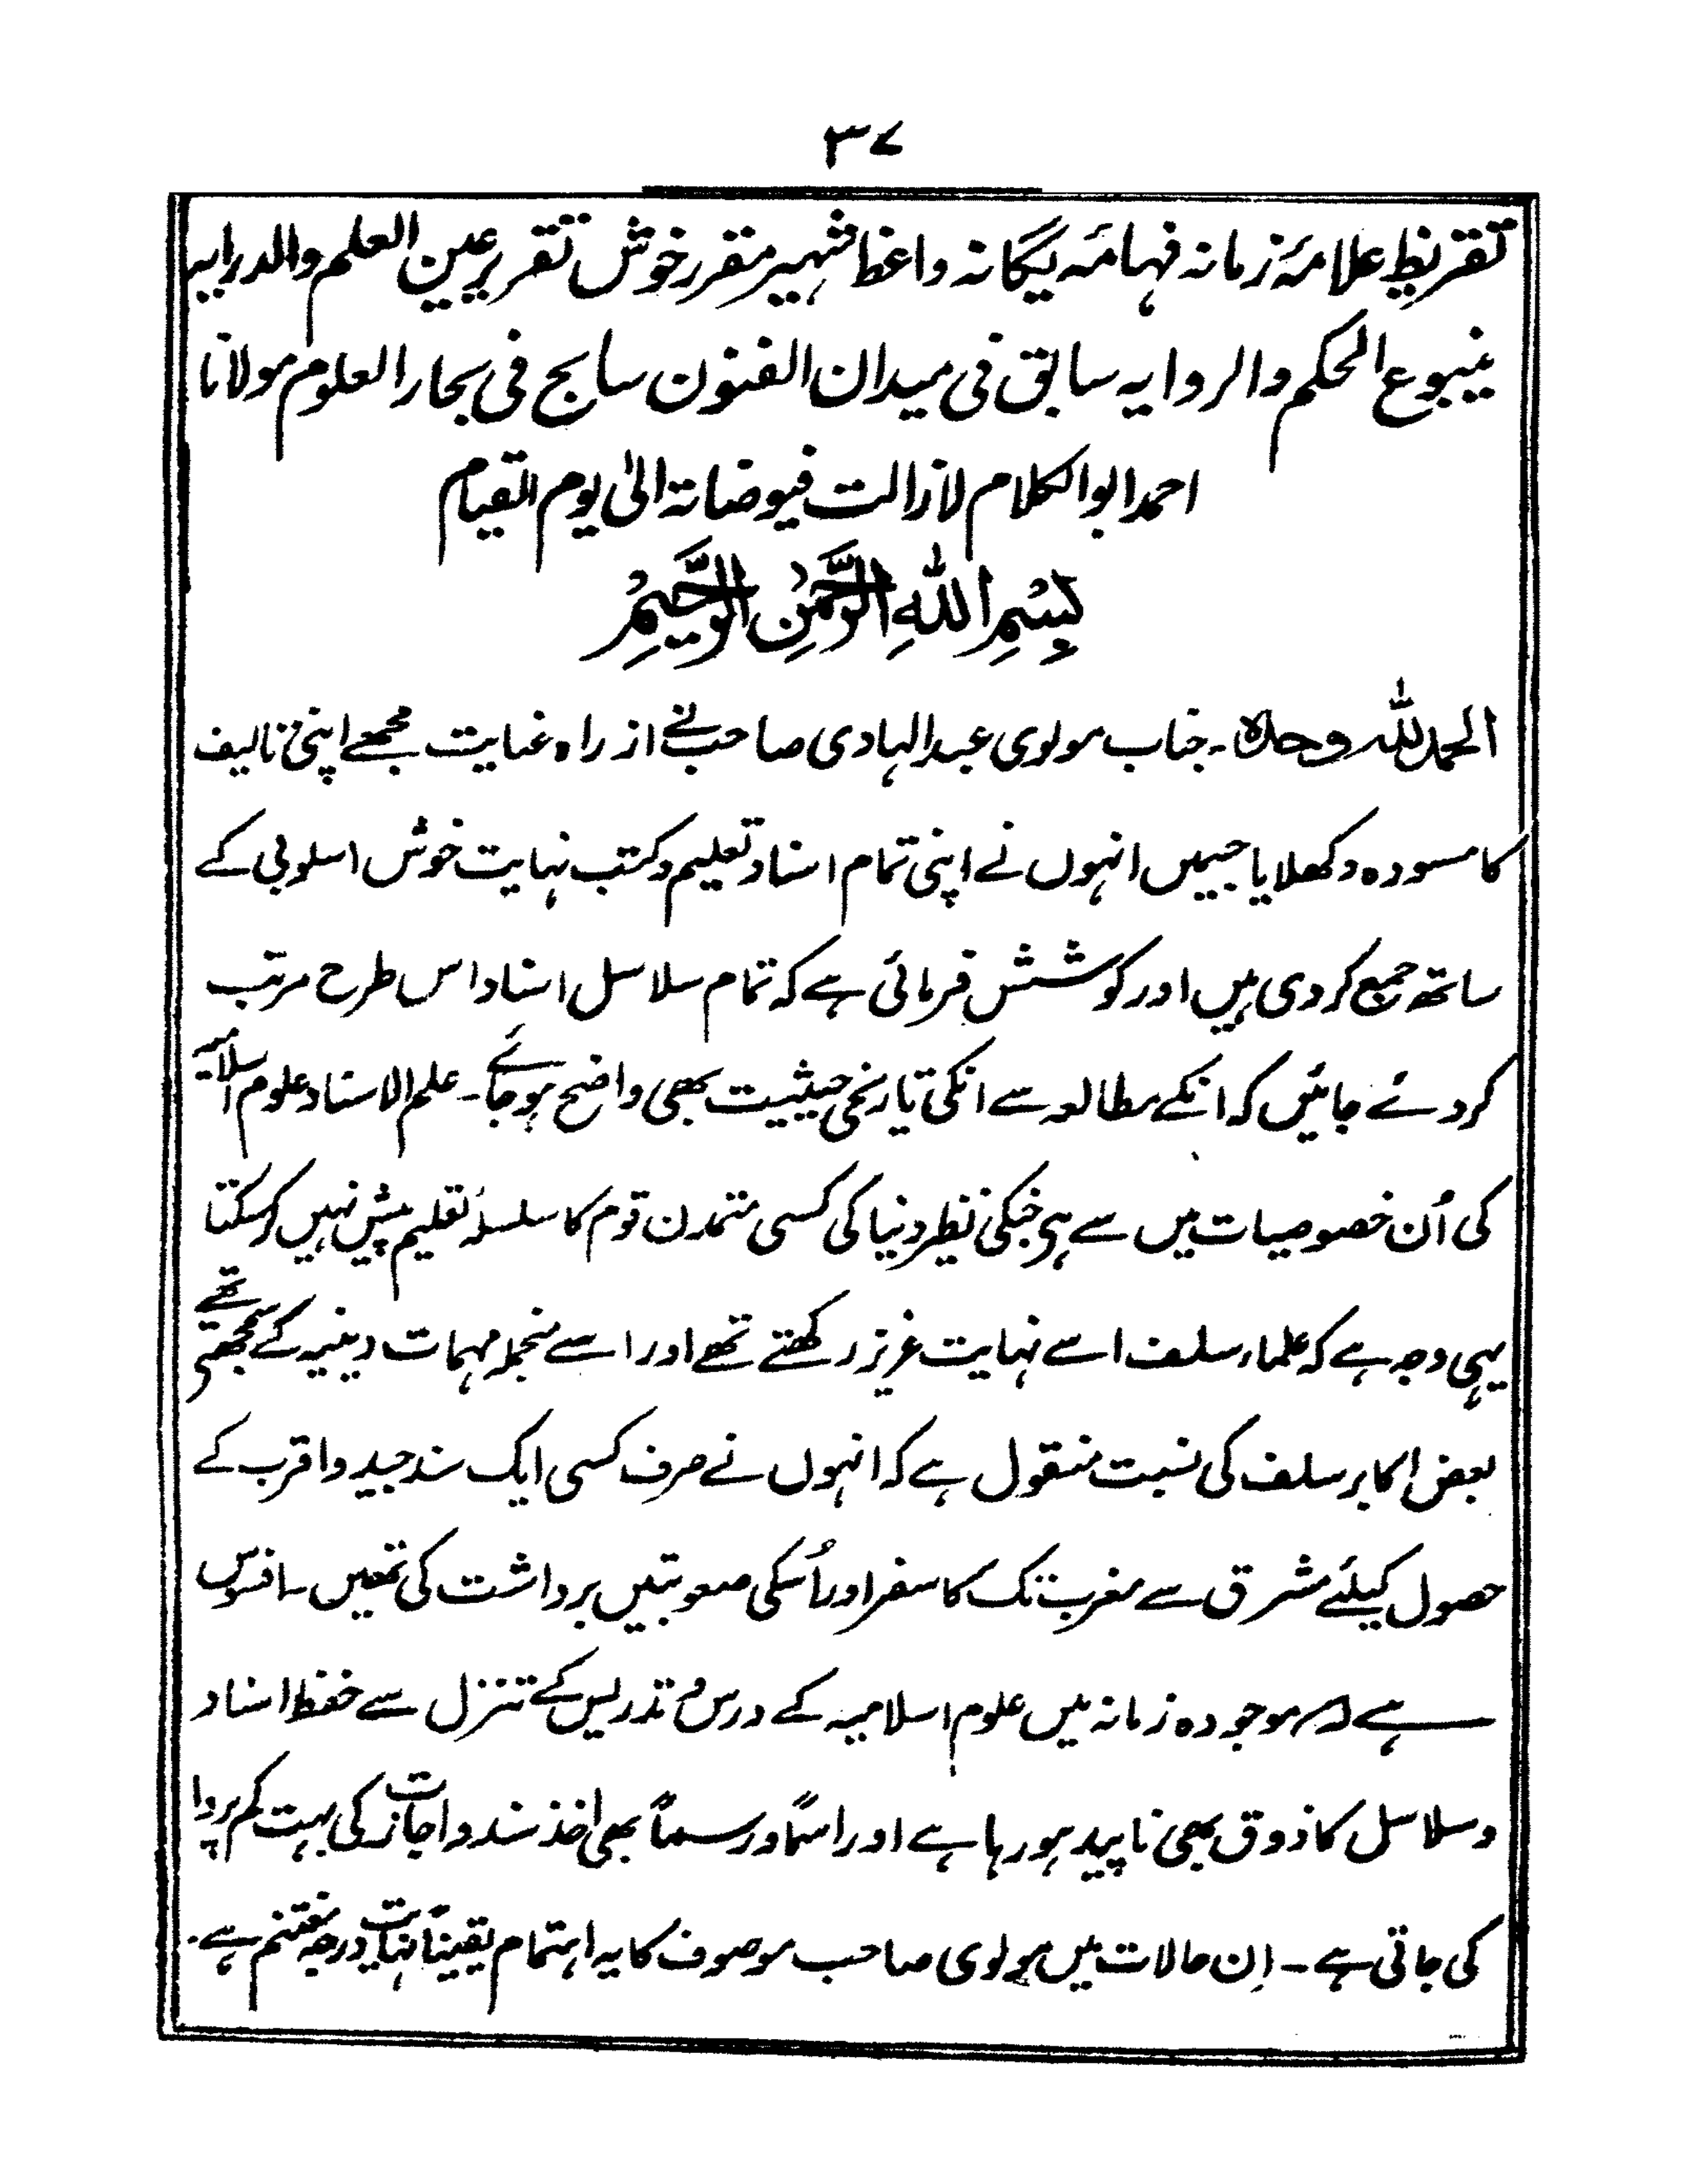 ۳۷
تقریظ علامۂ زمانہ فہامۂ یگانہ واعظ شہیر مقرر خوش تقریر عین العلم والدرایہ
ینبوع الحکم والروایہ سابق فی میدان الفنون سابح فی بحار العلوم مولانا
احمد ابوالکلام لازالت فیوضاتہ الیٰ یوم القیام
بِسْمِ اللهِ الرَّحْمٰنِ الرَّحِيمِْ
الحمد للہ وحدہ ۔ جناب مولوی عبدالہادی صاحب نے از راہ عنایت مجھے اپنی تالیف
کا مسودہ دکھلایا جسمیں انہوں نے اپنی تمام اسناد تعلیم و کتب نہایت خوش اسلوبی کے
ساتھ جمع کردی ہیں اور کوشش فرمائی ہے کہ تمام سلاسل اسناد اس طرح مرتب
کردئے جائیں کہ انکے مطالعہ سے انکی تاریخی حیثیت بھی واضح ہوجائے ۔ علم الاسناد علوم اسلامیہ
کی اُن خصوصیات میں سے ہی جنکی نظیر دنیا کی کسی متمدن قوم کا سلسلۂ تعلیم پیش نہیں کرسکتا
یہی وجہ ہے کہ علماء سلف اسے نہایت عزیز رکھتے تھے اور اسے منجملہ مہمات دینیہ کے سمجھتے تھے
بعض اکابر سلف کی نسبت منقول ہے کہ انہوں نے صرف کسی ایک سند جید و اقرب کے
حصول کیلئے مشرق سے مغرب تک کا سفر اور اُسکی صعوبتیں برداشت کی تھیں ۔ افسوس
ہے کہ موجودہ زمانہ میں علوم اسلامیہ کے درس و تدریس کے تنزل سے حفظ اسناد
و سلاسل کا ذوق بھی ناپید ہو رہا ہے اور اسماً و رسماً بھی اخذ سند و اجازت کی بہت کم پروا
کی جاتی ہے ۔ اِن حالات میں مولوی صاحب موصوف کا یہ اہتمام یقیناً نہایت درجہ مغتنم ہے ۔